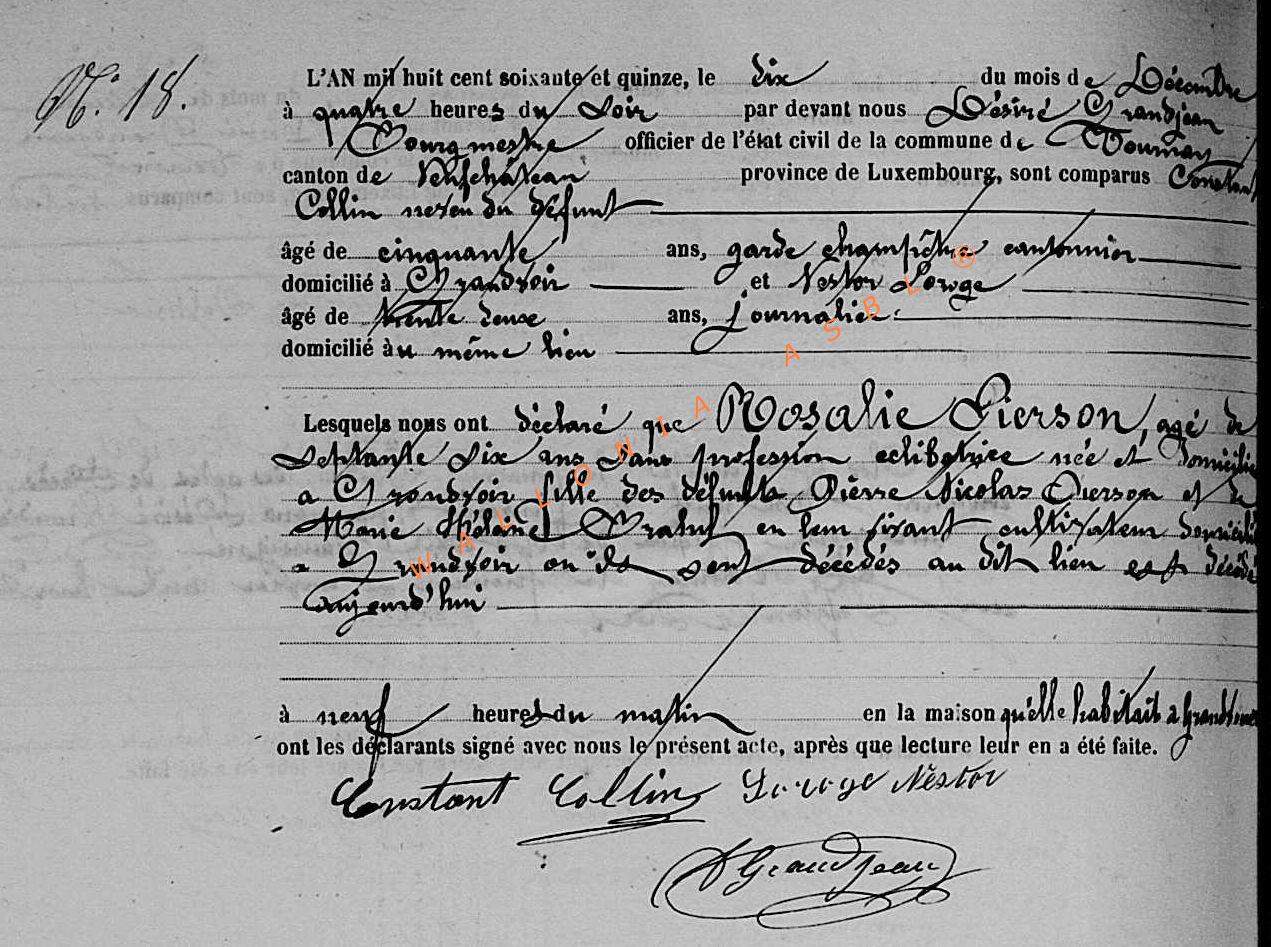 N° 18.
L'AN mil huit cent soixante et quinze, le dix du mois de Décembre
à quatre heures du soir par devant nous Désiré Grandjean
Bourgmestre officier de l'état civil de la commune de Tournay
canton de Neufchâteau province de Luxembourg, sont comparus Constant
Collin neveu du défunt
âgé de cinquante ans, garde champêtre cantonnier
domicilié à Grandvoir et Nestor Loroge
âgé de trente deux ans, journalier
domicilié au même lieu
Lesquels nous ont déclaré que Rosalie Pierson, agé de
septante six ans sans profession celibatrice née et domicilié
a Grandvoir fille des défunts Pierre Nicolas Pierson et de
Marie Hélaine en leur vivant cultivateur domicilié
a Grandvoir ou ils sont décédés au dit lieu est décédé
aujourd'hui
à neuf heures du matin en la maison qu'elle habitait a Grandvoir
ont les déclarants signé avec nous le présent acte, après que lecture leur en a été faite.
Constant Collin Loroge Nestor
D Grandjean
WALLONIA ASBL ®